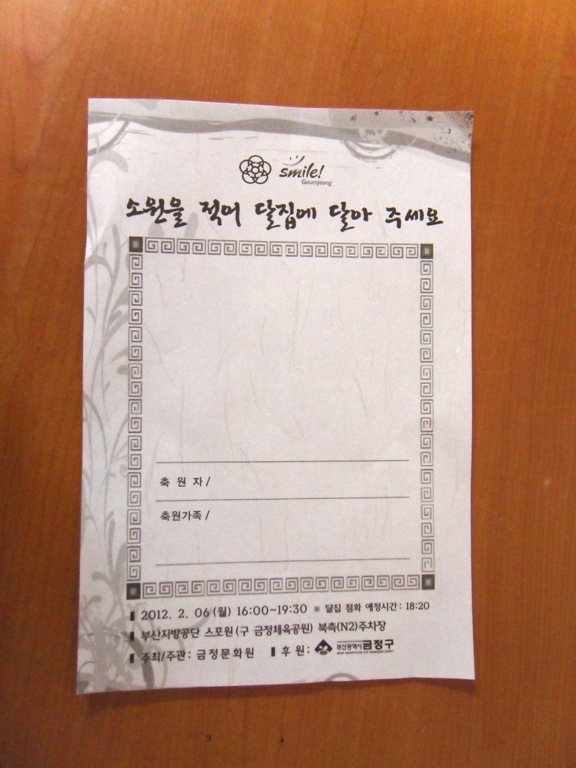 smile!
Geumjeong
소원을 적어 달집에 달아 주세요
축 원 자 /
축원가족 /
2012. 2. 06 (월) 16:00~19:30 ※ 달집 점화 예정시간 : 18:20
부산지방공단 스포원 (구 금정체육공원) 북측(N2)주차장
주최/주관 : 금정문화원 후 원 : 부산광역시 금정구